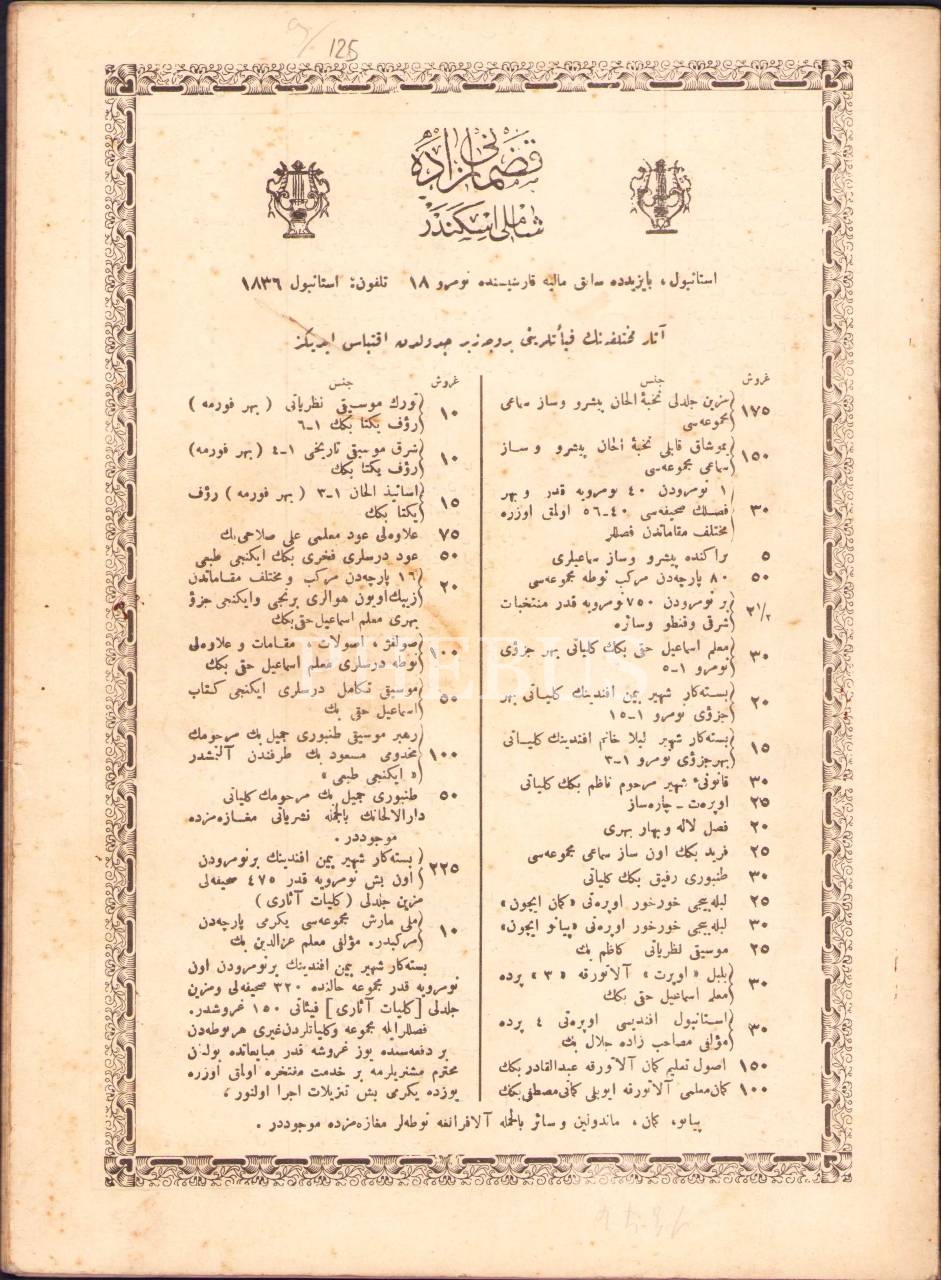 125
قضمانی زاده
شاملی اسكندر
استانبول، بایزیدده سابق مالیه قارشیسنده نومرو ١٨ تلفون: استانبول ١٨٣٦
آثار مختلفه‌نك فیأتلرینی بروجه‌زیر جدولدن اقتباس ایدیكز
غروش جنس
١٧٥ مزین جلدلی نخبهٔ الحان پیشرو وساز سماعی
مجموعه‌سی
١٥٠ یموشاق قابلی نخبهٔ الحان پیشرو و ساز
سماعی مجموعه‌سی
١ نومرودن ٤٠ نومرویه قدر و بهر
٣٠ فصلك صحیفه‌سی ٤٠-٥٦ اولمق اوزره
مختلف مقاماتدن فصللر
٥ پراكنده پیشرو وساز سماعیلری
٥٠ ٨٠ پارچه‌دن مركب نوطه مجموعه‌سی
٢١/٢ بر نومرودن ٧٥٠ نومرویه قدر منتخبات
شرقی وقنطو وسائره
٣٠ معلم اسماعیل حقی بكك كلیاتی بهر جزؤی
نومرو ١-٥
٢٠ بسته‌كار شهیر بیمن افندینك كلیاتی بهر
جزؤی نومرو ١-١٥
١٥ بسته‌كار شهیر لیلا خانم افندینك كلیاتی
بهر جزؤی نومرو ١-٣
٣٠ قانونیٔ شهیر مرحوم ناظم بكك كلیاتی
٢٥ اوپره‌ت - چاره‌ساز
٢٠ فصل لاله وبهار بهری
٢٥ فرید بكك اون ساز سماعی مجموعه‌سی
٣٠ طنبوری رفیق بكك كلیاتی
٢٥ لبله‌بیجی خورخور اوپره‌تی «كمان ایچون»
٣٠ لبله‌بیجی خورخور اوپره‌تی «پیانو ایچون»
٢٥ موسیقی نظریاتی كاظم بك
٣٠ بلبل «اوپرت» آلاتورقه «٣» پرده
معلم اسماعیل حقی بكك
٣٠ استانبول افندیسی اوپره‌تی ٤ پرده
مؤلفی مصاحب زاده جلال بك
١٥٠ اصول تعلیم كمان آلاتورقه عبدالقادر بكك
١٠٠ كمان معلمی آلاتورقه ایوبلی كمانی مصطفی بكك
غروش جنس
١٠ تورك موسیقی نظریاتی ( بهر فورمه )
رؤف یكتا بكك ١-٦
١٠ شرق موسیقی تاریخی ١-٤ ( بهر فورمه)
رؤف یكتا بكك
١٥ اساتیذ الحان ١-٣ ( بهر فورمه ) رؤف
یكتا بكك
٧٥ علاوه‌لی عود معلمی علی صلاحی بك
٥٠ عود درسلری فخری بكك ایكنجی طبعی
١٦ پارچه‌دن مركب و مختلف مقاماتدن
٢٠ زیبك اویون هوالری برنجی وایكنجی جزؤ
بهری معلم اسماعیل حقی بكك
١٠٠ صولفژ ، اصولات ، مقامات و علاوه‌لی
نوطه درسلری معلم اسماعیل حقی بكك
٥٠ موسیقی تكامل درسلری ایكنجی كتاب
اسماعیل حقی بك
رهبر موسیقی طنبوری جمیل بك مرحومك
١٠٠ مخدومی مسعود بك طرفندن آلنمشدر
« ایكنجی طبعی »
٥٠ طنبوری جمیل بك مرحومك كلیاتی
دارالالحانك بالجمله نشریاتی مغازه‌مزده
موجوددر .
بسته‌كار شهیر بیمن افندینك برنومرودن
٢٢٥ اون بش نومرویه قدر ٤٧٥ صحیفه‌لی
مزین جلدلی (كلیات آثاری )
١٠ ملی مارش مجموعه‌سی یكرمی پارچه‌دن
مركبدر. مؤلفی معلم عزالدین بك
بسته‌كار شهیر بیمن افندینك برنومرودن اون
نومرویه قدر مجموعه حالنده ٣٢٠ صحیفه‌لی ومزین
جلدلی [كلیات آثاری] فیئاتی ١٥٠ غروشدر.
فصللرایله مجموعه وكلیاتلردن غیری هرنوطه‌دن
بر دفعه‌سنده یوز غروشه قدر مبایعاتده بولنان
محترم مشتریلرمه بر خدمت مفتخره اولمق اوزره
یوزده یكرمی بش تنزیلات اجرا اولنور ،
پیانو، كمان ، ماندولین وسائر بالجمله آلافرانغه نوطه‌لر مغازه‌مزده موجوددر .
PHEBUS